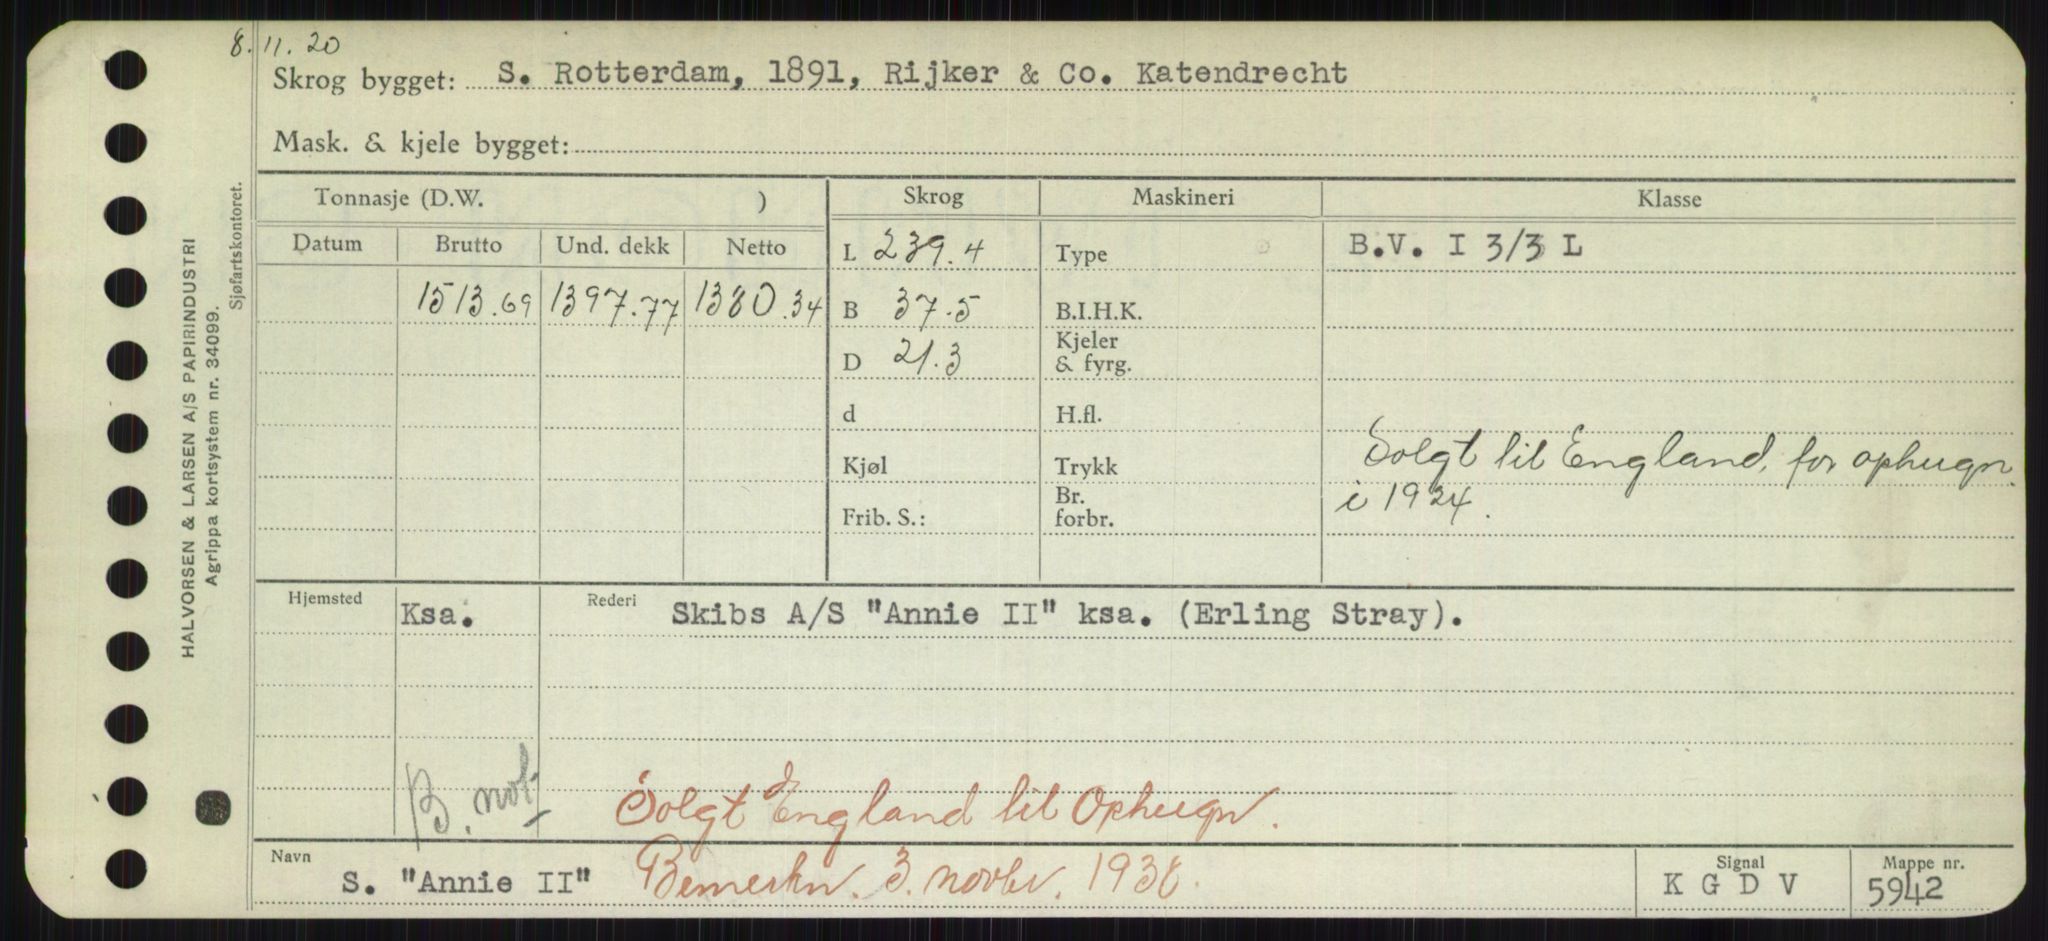 8.11.20
Skrog bygget: S. Rotterdam, 1891, Rijker & Co. Katendrecht
Mask. & kjele bygget:
Tonnasje (D.W. ) Skrog Maskineri Klasse
Datum Brutto Und. dekk Netto L 239.4 Type B.V. I 3/3 L
1513.69 1397.77 1380.34 B 37.5 B.I.H.K.
D 21.3 Kjeler & fyrg.
d H.fl.
Kjøl Trykk Solgt til England, for ophugn.
Frib. S.: Br. forbr. i 1924.
Hjemsted Ksa. Rederi Skibs A/S "Annie II" ksa. (Erling Stray).
B. not. Solgt England til Ophugn.
Navn S. "Annie II" Bemerkn. 3. novbr. 1938. Signal K G D V Mappe nr. 5942
HALVORSEN & LARSEN A/S PAPIRINDUSTRI
Agrippa kortsystem nr. 34099.
Sjøfartskontoret.